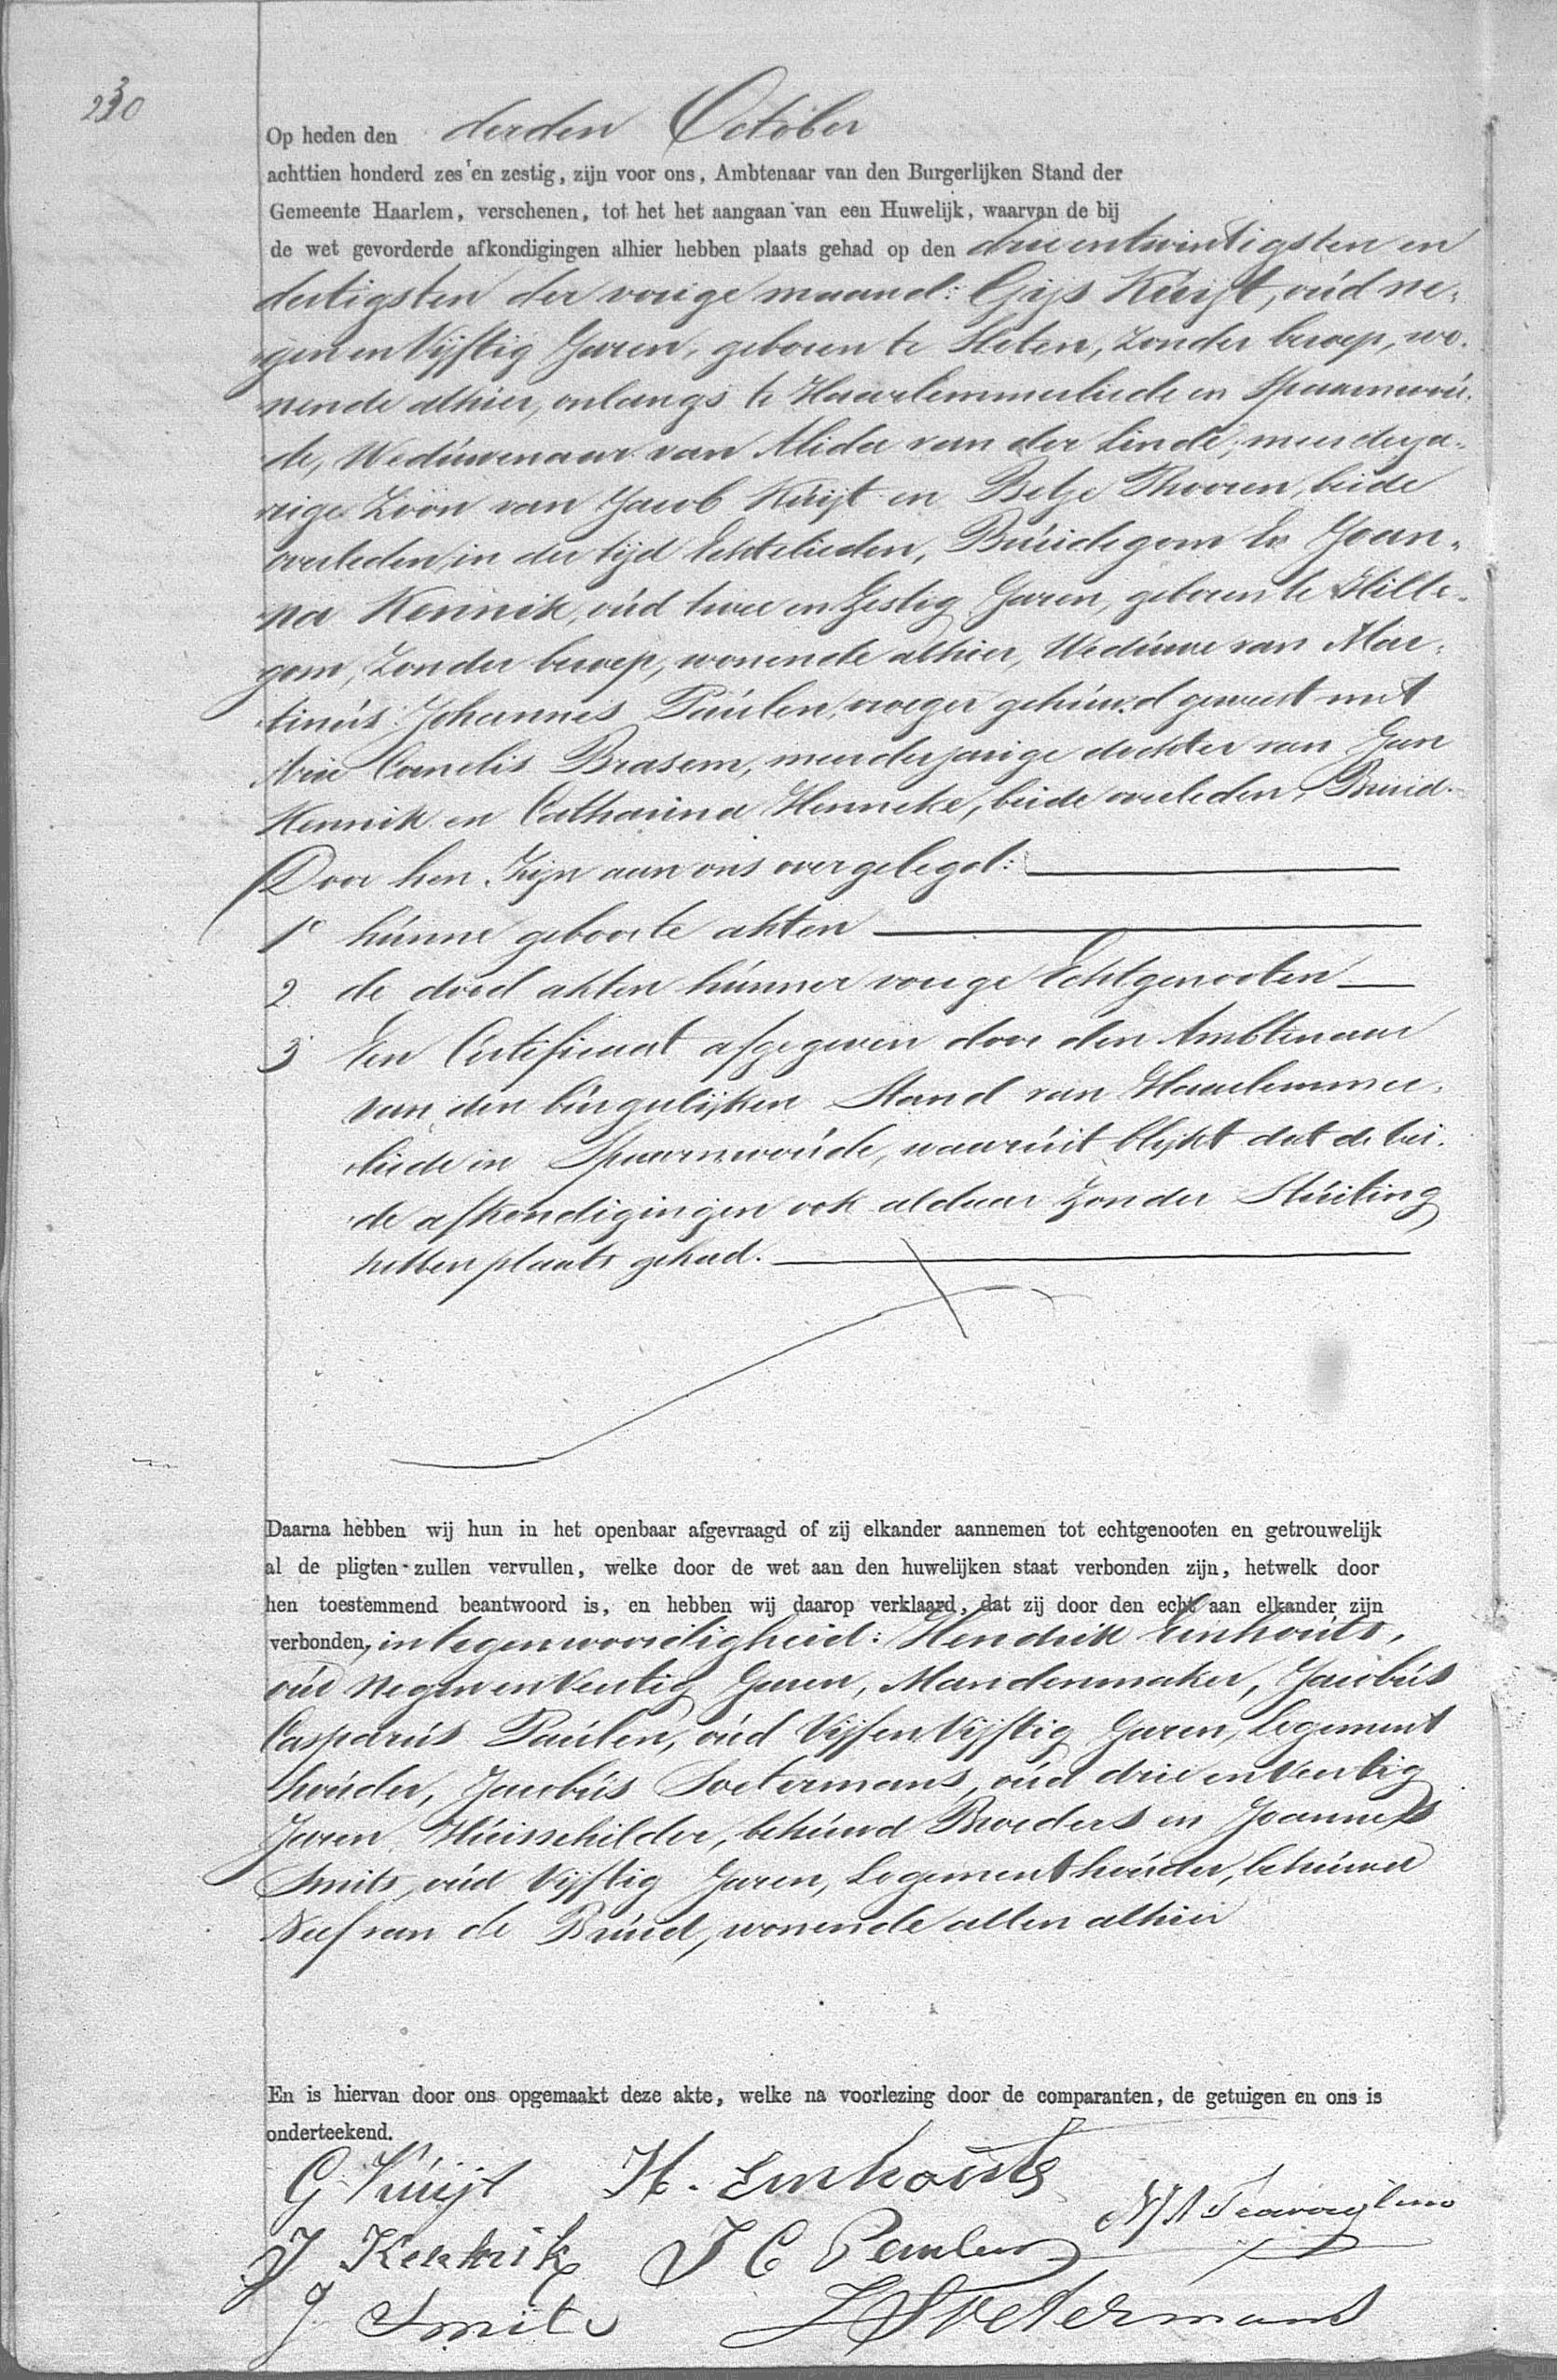 230
Op heden den derden October
achttien honderd zes en zestig, zijn voor ons, Ambtenaar van den Burgerlijken Stand der
Gemeente Haarlem, verschenen, tot het het aangaan van een Huwelijk, waarvan de bij
de wet gevorderde afkondigingen alhier hebben plaats gehad op den drieentwintigsten en
dertigsten der vorige maand: Gijs Kuijt, oud ne-
gen en Vijftig Jaren, geboren te Sloten, zonder beroep, wo-
nende alhier, onlangs te Haarlemmerliede en Spaarnwou-
de, Weduwenaar van Alida van der Linde, meerderja-
rige Zoon van Jacob Kuijt en Betje Thooren, beide
overleden, in der tijd Echtelieden, Bruidegom En Joan-
na Kennik, oud twee en Zestig Jaren, geboren te Hille-
gom, Zonder beroep, wonende alhier, Weduwe van Mar-
tinus Johannes Paulen, vroeger gehuwd geweest met
Arie Cornelis Brasem, meerderjarige dochter van Jan
Kennik en Catharina Henneke, beide overleden, Bruid.
Door hen Zijn aan ons overgelegd:
1e hunne geboorte akten
2 de dood akten hunner vorige Echtgenooten
3 Een Certificaat afgegeven door den Ambtenaar
van den burgerlijken Stand van Haarlemmer-
liede en Spaarnwoude, waaruit blijkt dat de bei-
de afkondigingen ook aldaar zonder Stuiting
hebben plaats gehad.
Daarna hebben wij hun in het openbaar afgevraagd of zij elkander aannemen tot echtgenooten en getrouwelijk
al de pligten zullen vervullen, welke door de wet aan den huwelijken staat verbonden zijn, hetwelk door
hen toestemmend beantwoord is, en hebben wij daarop verklaard, dat zij door den echt aan elkander zijn
verbonden, in tegenwoordigheid: Hendrik Einhouts,
oud Negen en Veertig Jaren, Mandenmaker, Jacobus
Casparus Paulen, oud Vijf en Vijftig Jaren, Logement
houder, Jacobus Soetermans, oud drie en Veertig
Jaren Huisschilder, behuwd Broeders en Joannes
Smits, oud Vijftig Jaren, Logementhouder, behuwd
Neef van de Bruid, wonende allen alhier
En is hiervan door ons opgemaakt deze akte, welke na voorlezing door de comparanten, de getuigen en ons is
onderteekend.
G Kuijt H. Einhouts
J Kennik J C Paulen
J Smits J Soetermans